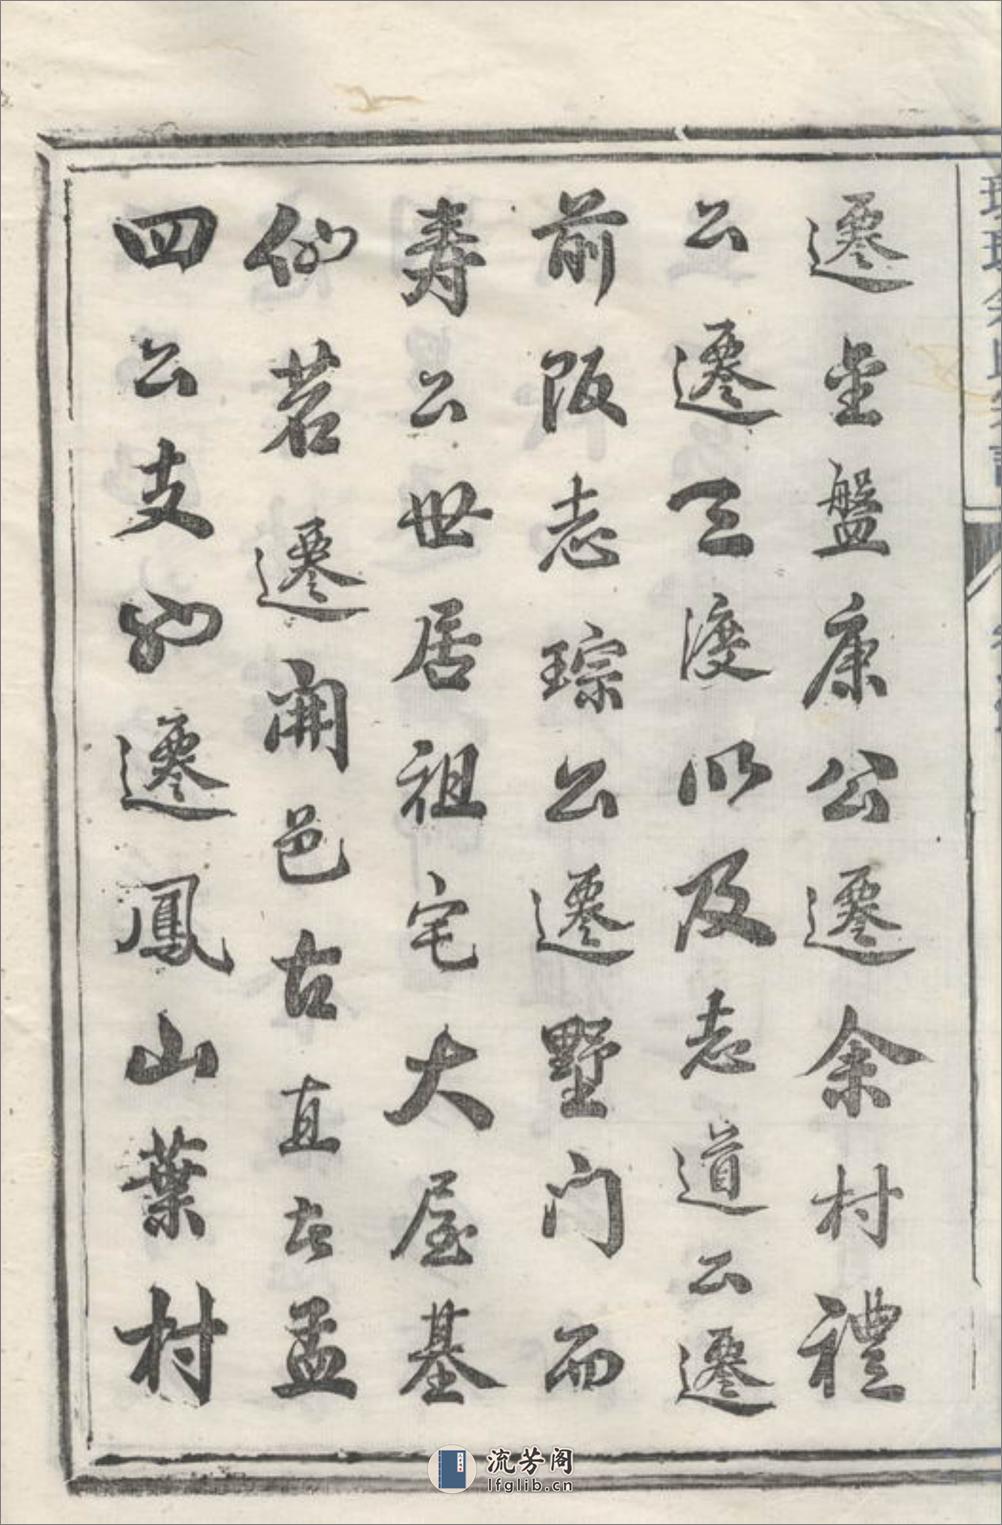 遷坐盤康公遷余村禮
公遷三渡以及志道公遷
前阪志琮公遷墅门而
壽公世居祖宅大屋基
仙茗遷開邑古直古孟
四公支如遷鳳山葉村
流芳阁
lfglib.cn